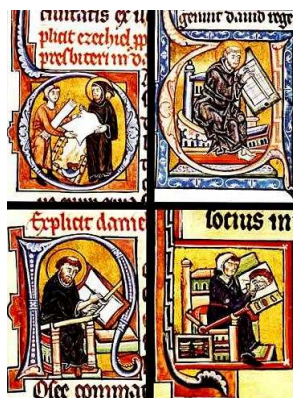 ciuitatis ex u
plicit ezechiel pp
presbiteri in d
genuit dauid rege
Explicit danie
Osee commat
locius in